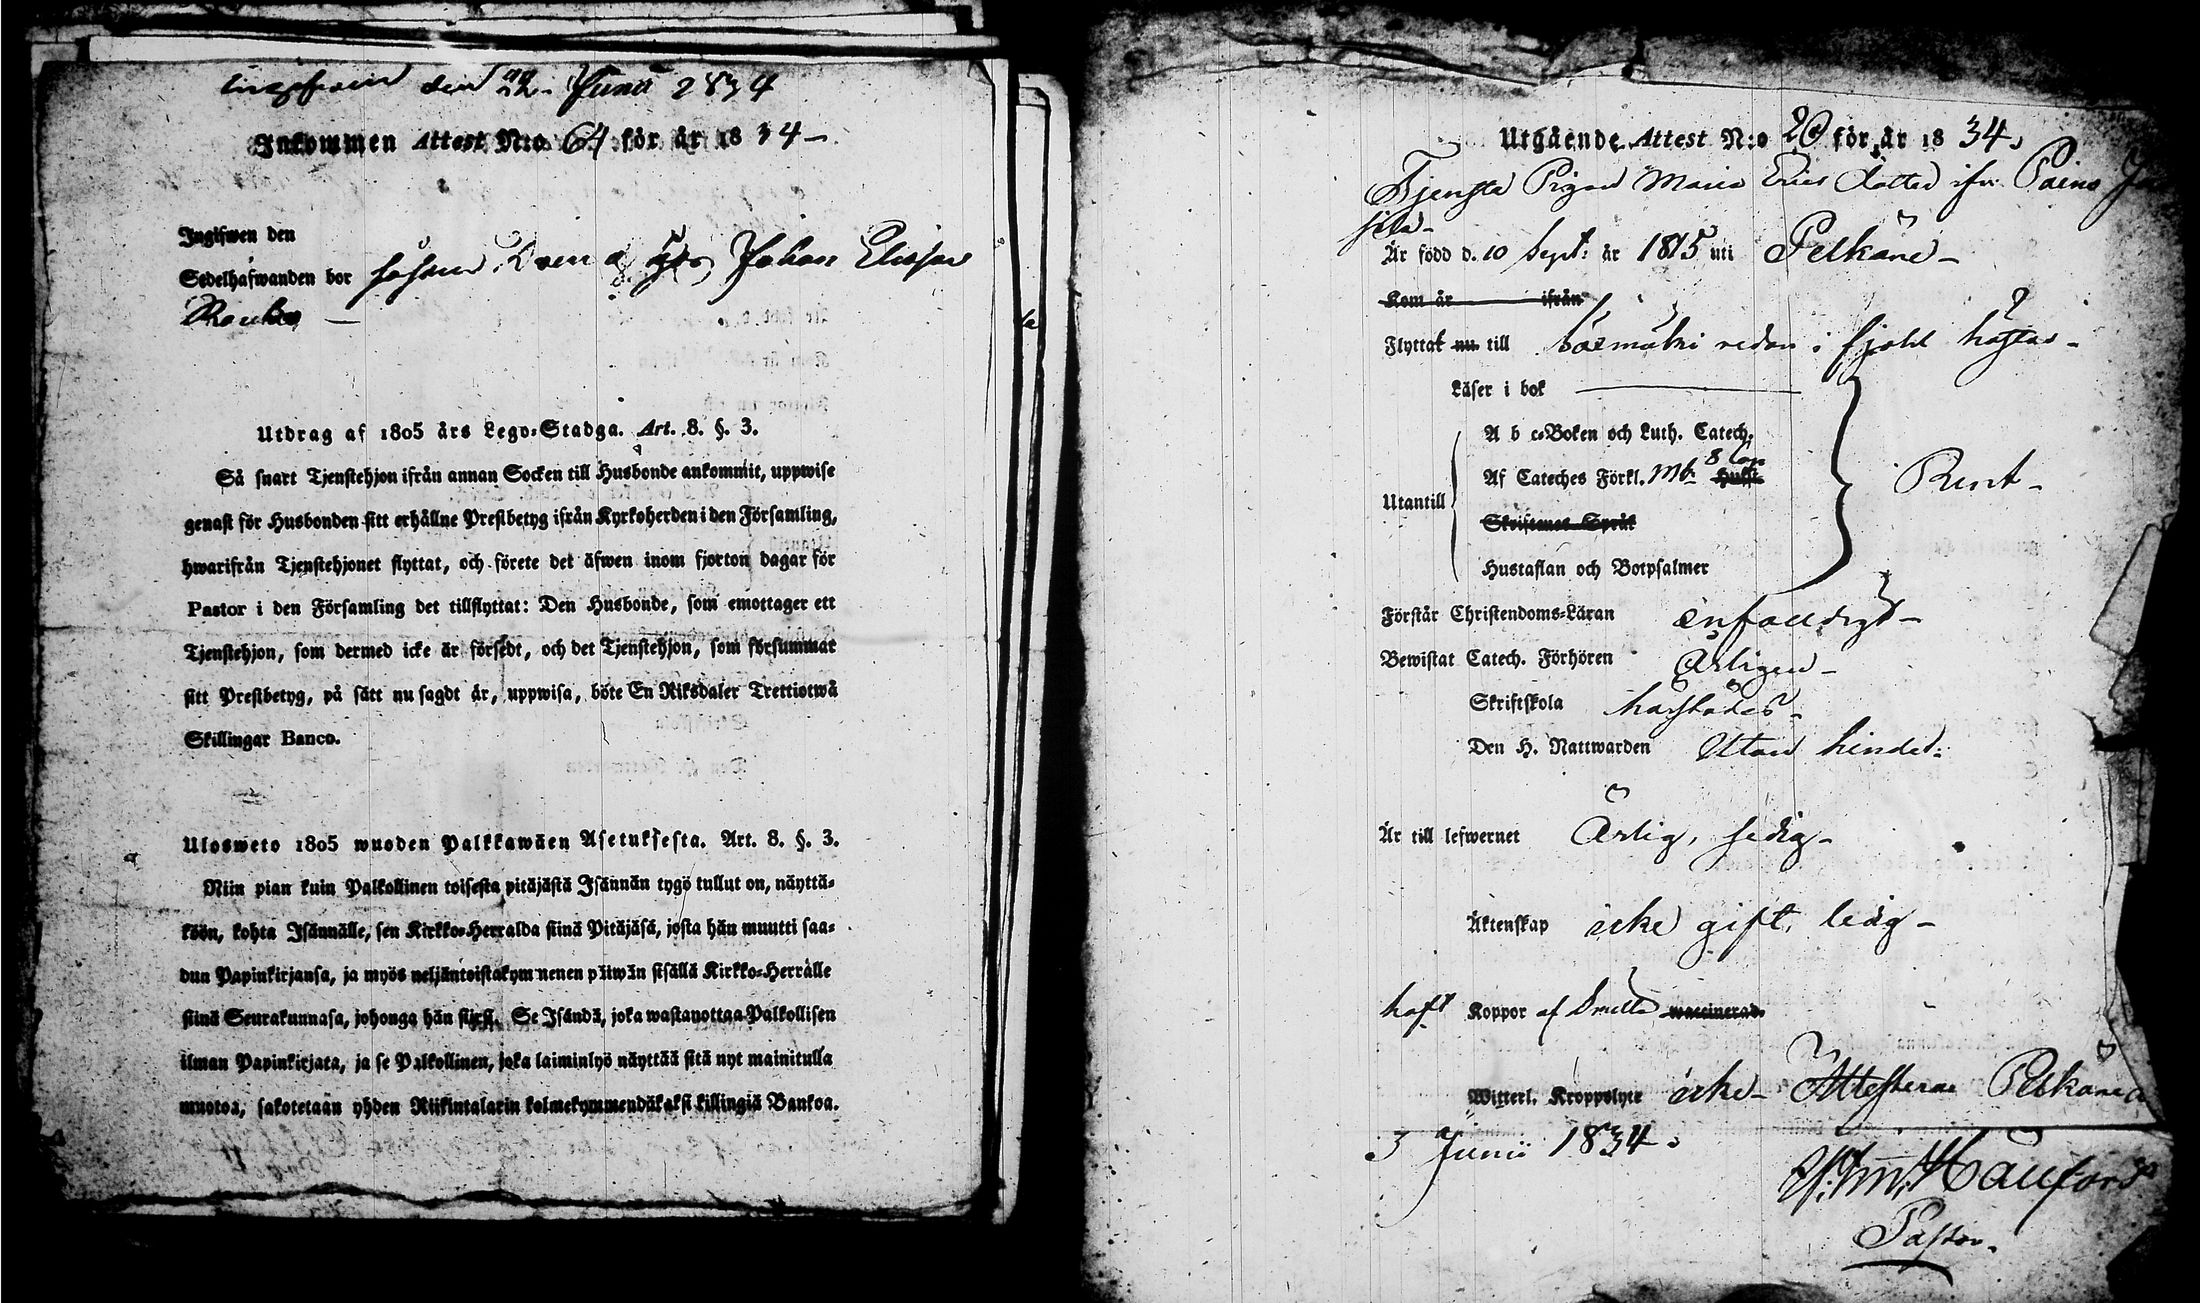 den 22 Junii 1834
Inkommen Attest N:o 64 för år 1834
Ingifwen den
Sedelhafwanden bor såsom Johan
Utdrag af 1805 års Lego-Stadga. Art. 8. §. 3.
Så snart Tjenstehjon ifrån annan Socken till Husbonde ankommit, uppwise
genast för Husbonden sitt erhållne Prestbetyg ifrån Kyrkoherden i den Församling,
hwarifrån Tjenstehjonet flyttat, och förete det äfwen inom fjorton dagar för
Pastor i den Församling det tillflyttat: Den Husbonde, som emottager ett
Tjenstehjon, som dermed icke är försedt, och det Tjenstehjon, som försummar
sitt Prestbetyg, på sätt nu sagdt är, uppwisa, böte En Riksdaler Trettiotwå
Skillingar Banco.
Ulosweto 1805 wuoden Palkkawäen Asetuksesta. Art. 8. §. 3.
Niin pian kuin Palkollinen toisesta pitäjästä Isännän tygö tullut on, näyttä-
köön, kohta Isännälle, sen Kirkko-Herralda siinä Pitäjäsä, josta hän muutti saa-
dun Papinkirjansa, ja myös neljäntoistakymmenen päiwän sisällä Kirkko-Herralle
siinä Seurakunnasa, johonga hän siirsi. Se Isändä, joka wastanottaa Palkollisen
ilman Papinkirjata, ja se Palkollinen, joka laiminlyö näyttää sitä nyt mainitulla
muotoa, sakotetaan yhden Riikintalarin kolmekymmendäkaksi killingiä Bankoa.
Utgående Attest N:o 20 för år 1834.
Tjenste Pigan Maria Ericsdotter ifrn
Är född d. 10 Sept: år 1815 uti Pelkäne
Kom år ifrån
Flyttat nu till redan i fjold höstas
Läser i bok
A b c-Boken och Luth. Catech.
Af Cateches Förkl.
Utantill
Skriftenes Språk
Rent
Hustaflan och Botpsalmer
Förstår Christendoms-Läran enfaldigt
Bewistat Catech. Förhören Årligen
Skriftskola
Den H. Nattwarden Utan hinder
Är till lefwernet Ärlig, sedig
Äktenskap icke gift, ledig
haft Koppor af Smitta waccinerad
Witterl. Kroppslyte icke Attesterar Pelkäne d
3 Junii 1834
Pastor